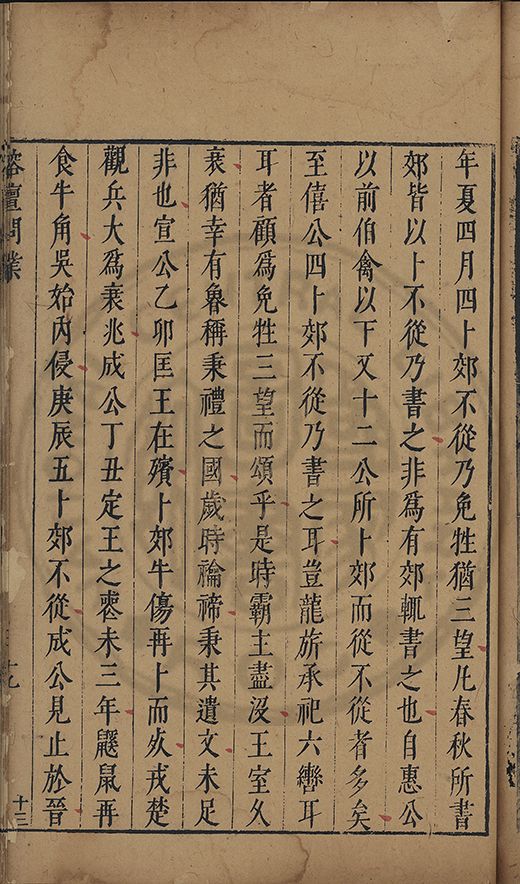 年夏四月四卜郊不從乃免牲猶三望凢春秋所書
郊皆以卜不從乃書之非爲有郊輒書之也自惠公
以前伯禽以下又十二公所卜郊而從不從者多矣
至僖公四卜郊不從乃書之耳豈龍旂承祀六轡耳
耳者顧爲免牲三望而頌乎是時霸主盡沒王室久
衰猶幸有魯稱秉禮之國歲時禴禘秉其遺文未足
非也宣公乙卯匡王在殯卜郊牛傷再卜而死戎楚
觀兵大爲衰兆成公丁丑定王之喪未三年鼷鼠再
食牛角吳始內侵庚辰五卜郊不從成公見止於晉
榕壇問業
十三